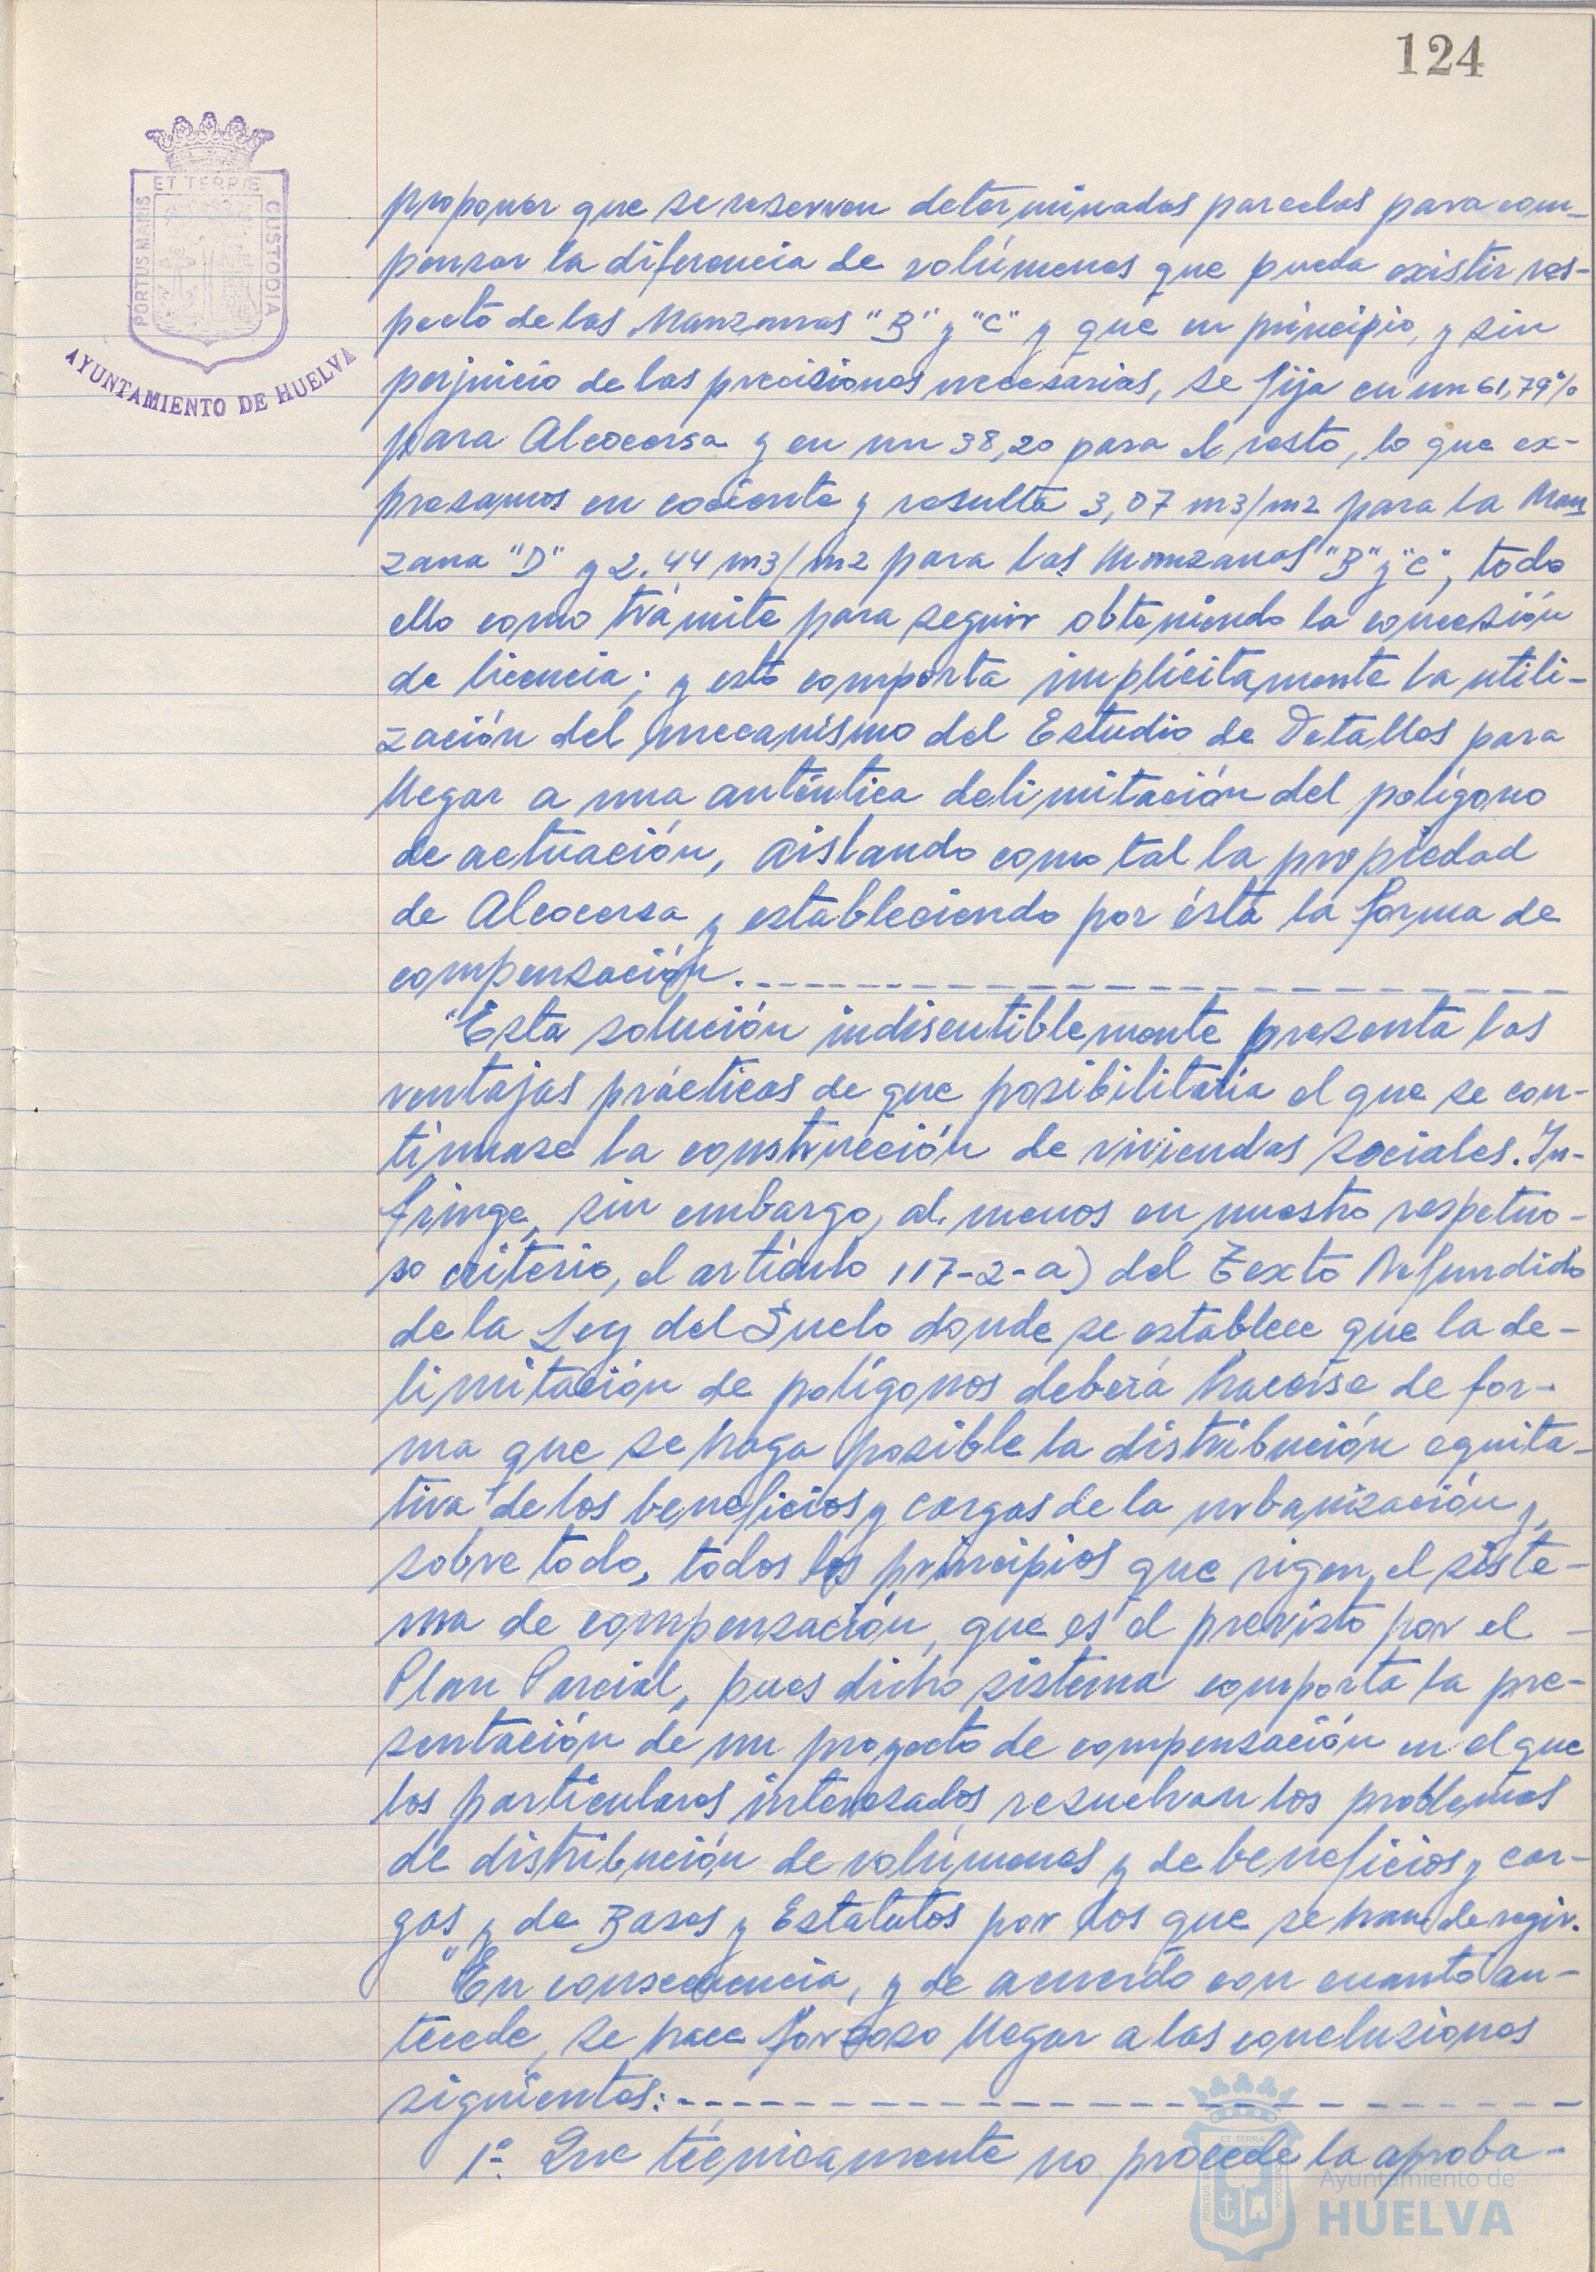 124
ET TERRÆ
PORTUS MARIS
CUSTODIA
AYUNTAMIENTO DE HUELVA
proponer que se reserven determinadas parcelas para com-
pensar la diferencia de volúmenes que pueda existir res-
pecto de las Manzanas "B" y "C" y que en principio, y sin
perjuicio de las precisiones necesarias, se fija en un 61,79%
para Alcocersa y en un 38,20 para el resto, lo que ex-
presamos en cociente y resulta 3,07 m3/m2 para la Man
zana "D" y 2.44 m3/m2 para las Manzanas "B" y "C", todo
ello como trámite para seguir obteniendo la concesión
de licencia; y esto comporta implícitamente la utili-
zación del mecanismo del Estudio de Detalles para
llegar a una auténtica delimitación del polígono
de actuación, aislando como tal la propiedad
de Alcocersa y estableciendo por ésta la forma de
compensación.
"Esta solución indiscutiblemente presenta las
ventajas prácticas de que posibilitaría el que se con-
tinuase la construcción de viviendas sociales. In-
fringe, sin embargo, al menos en nuestro respetuo-
so criterio, el artículo 117-2-a) del Texto Refundido
de la Ley del Suelo donde se establece que la de-
limitación de polígonos deberá hacerse de for-
ma que se haga posible la distribución equita-
tiva de los beneficios y cargas de la urbanización y,
sobre todo, todos los principios que rigen el siste-
ma de compensación, que es el previsto por el -
Plan Parcial, pues dicho sistema comporta la pre-
sentación de un proyecto de compensación en el que
los particulares interesados resuelvan los problemas
de distribución de volúmenes y de beneficios y car-
gas y de Bases y Estatutos por los que se han de regir.
"En consecuencia, y de acuerdo con cuanto an-
tecede, se hace forzoso llegar a las conclusiones
siguientes:
1º. Que técnicamente no procede la aproba-
ET TERRÆ
Ayuntamiento de
HUELVA